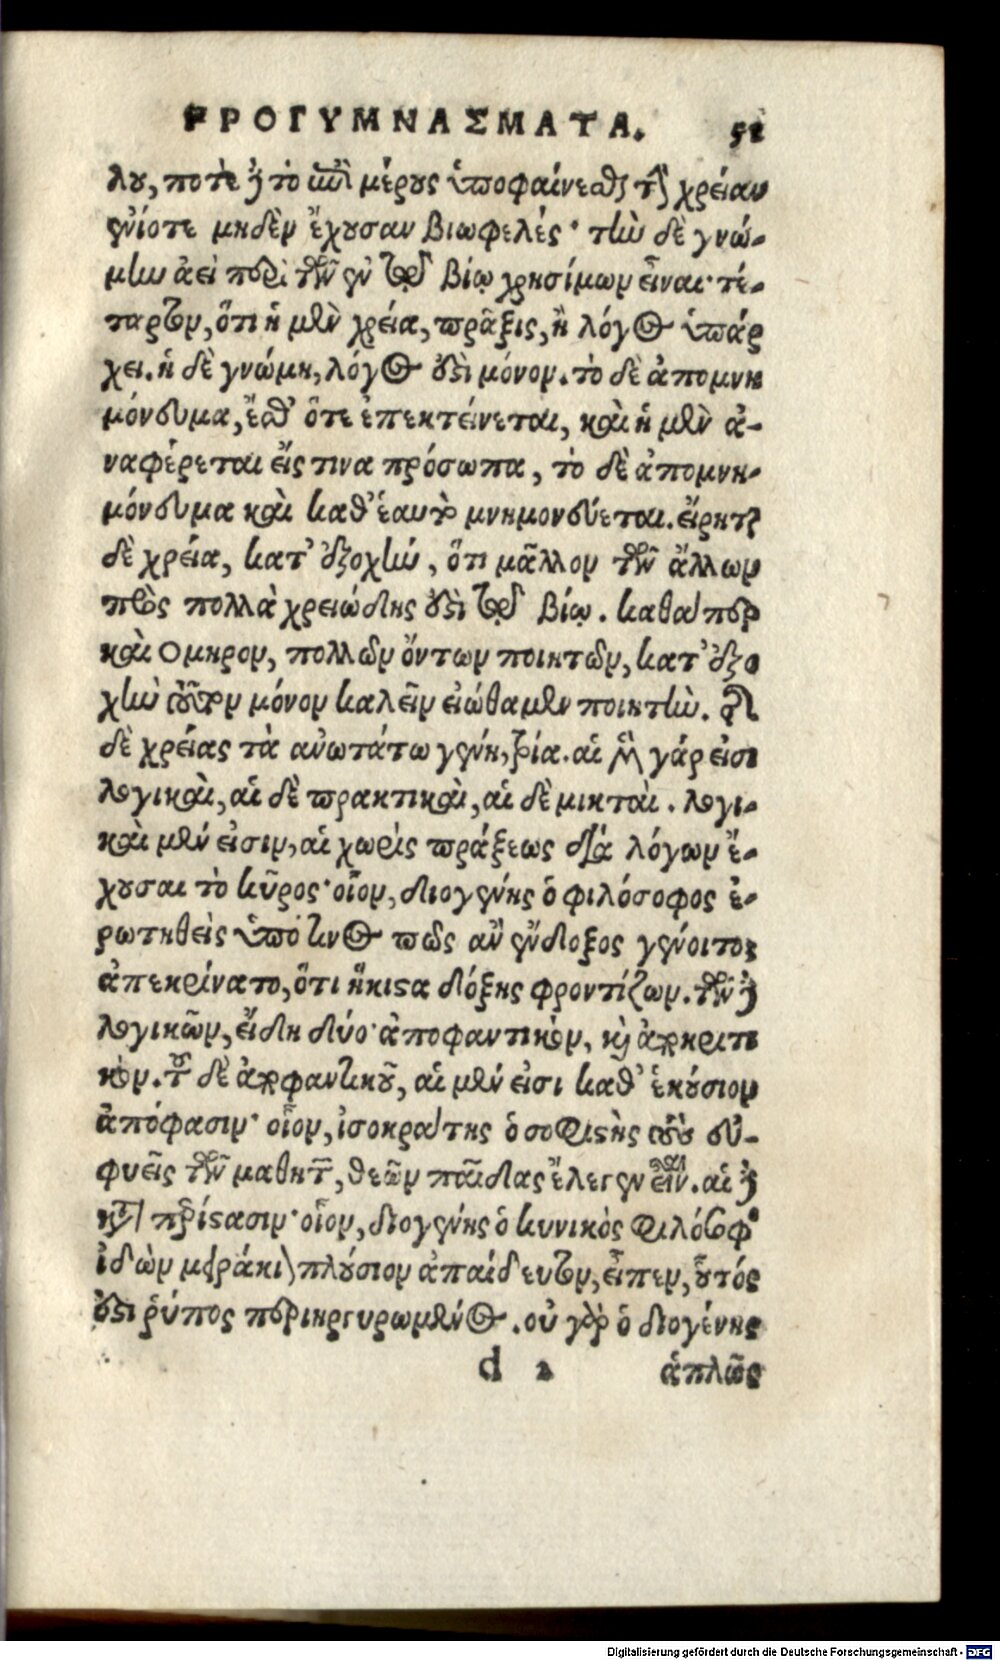 ΠΡΟΓΥΜΝΑΣΜΑΤΑ. 51
λου, ποτὲ δὲ τὸ ἐπὶ μέρους ὑποφαίνεσθαι· τὴν χρείαν
ἐνίοτε μηδὲν ἔχουσαν βιωφελές· τὴν δὲ γνώ-
μην ἀεὶ περὶ τῶν ἐν τῷ βίῳ χρησίμων εἶναι· τέ-
ταρτον, ὅτι ἡ μὲν χρεία, πρᾶξις, ἢ λόγος ὑπάρ
χει. ἡ δὲ γνώμη, λόγος ἐστὶ μόνον. τὸ δὲ ἀπομνη
μόνευμα, ἔσθ' ὅτε ἐπεκτείνεται, καὶ ἡ μὲν ἀ-
ναφέρεται εἴς τινα πρόσωπα, τὸ δὲ ἀπομνη-
μόνευμα καὶ καθ' ἑαυτὸ μνημονεύεται. εἴρηται
δὲ χρεία, κατ' ἐξοχὴν, ὅτι μᾶλλον τῶν ἄλλων
πρὸς πολλὰ χρειώδης ἐστὶ τῷ βίῳ. καθάπερ
καὶ Ομηρον, πολλῶν ὄντων ποιητῶν, κατ' ἐξο
χὴν τοῦτον μόνον καλεῖν εἰώθαμεν ποιητὴν. τῆς
δὲ χρείας τὰ ἀνωτάτω γένη, τρία. αἱ μὲν γάρ εἰσι
λογικαὶ, αἱ δὲ πρακτικαὶ, αἱ δὲ μικταὶ. λογι-
καὶ μὲν εἰσιν, αἱ χωρὶς πράξεως διὰ λόγων ἔ-
χουσαι τὸ κῦρος· οἷον, διογένης ὁ φιλόσοφος ἐ-
ρωτηθεὶς ὑπό τινος πῶς ἂν ἔνδοξος γένοιτο;
ἀπεκρίνατο, ὅτι ἥκιστα δόξης φροντίζων. τῶν δὲ
λογικῶν, εἴδη δύο· ἀποφαντικὸν, καὶ ἀποκριτι
κὸν. τοῦ δὲ ἀποφαντικοῦ, αἱ μὲν εἰσι καθ' ἑκούσιον
ἀπόφασιν· οἷον, ἰσοκράτης ὁ σοφιστὴς τοὺς εὐ-
φυεῖς τῶν μαθητῶν, θεῶν παῖδας ἔλεγεν εἶναι. αἱ δὲ
κατὰ περίστασιν· οἷον, διογένης ὁ κυνικὸς φιλόσοφος
ἰδὼν μειράκιον πλούσιον ἀπαίδευτον, εἶπεν, οὗτός
ἐστι ῥύπος περιηργυρωμένος. οὐ γὰρ ὁ διογένης
d 2 ἁπλῶς
Digitalisierung gefördert durch die Deutsche Forschungsgemeinschaft - DFG